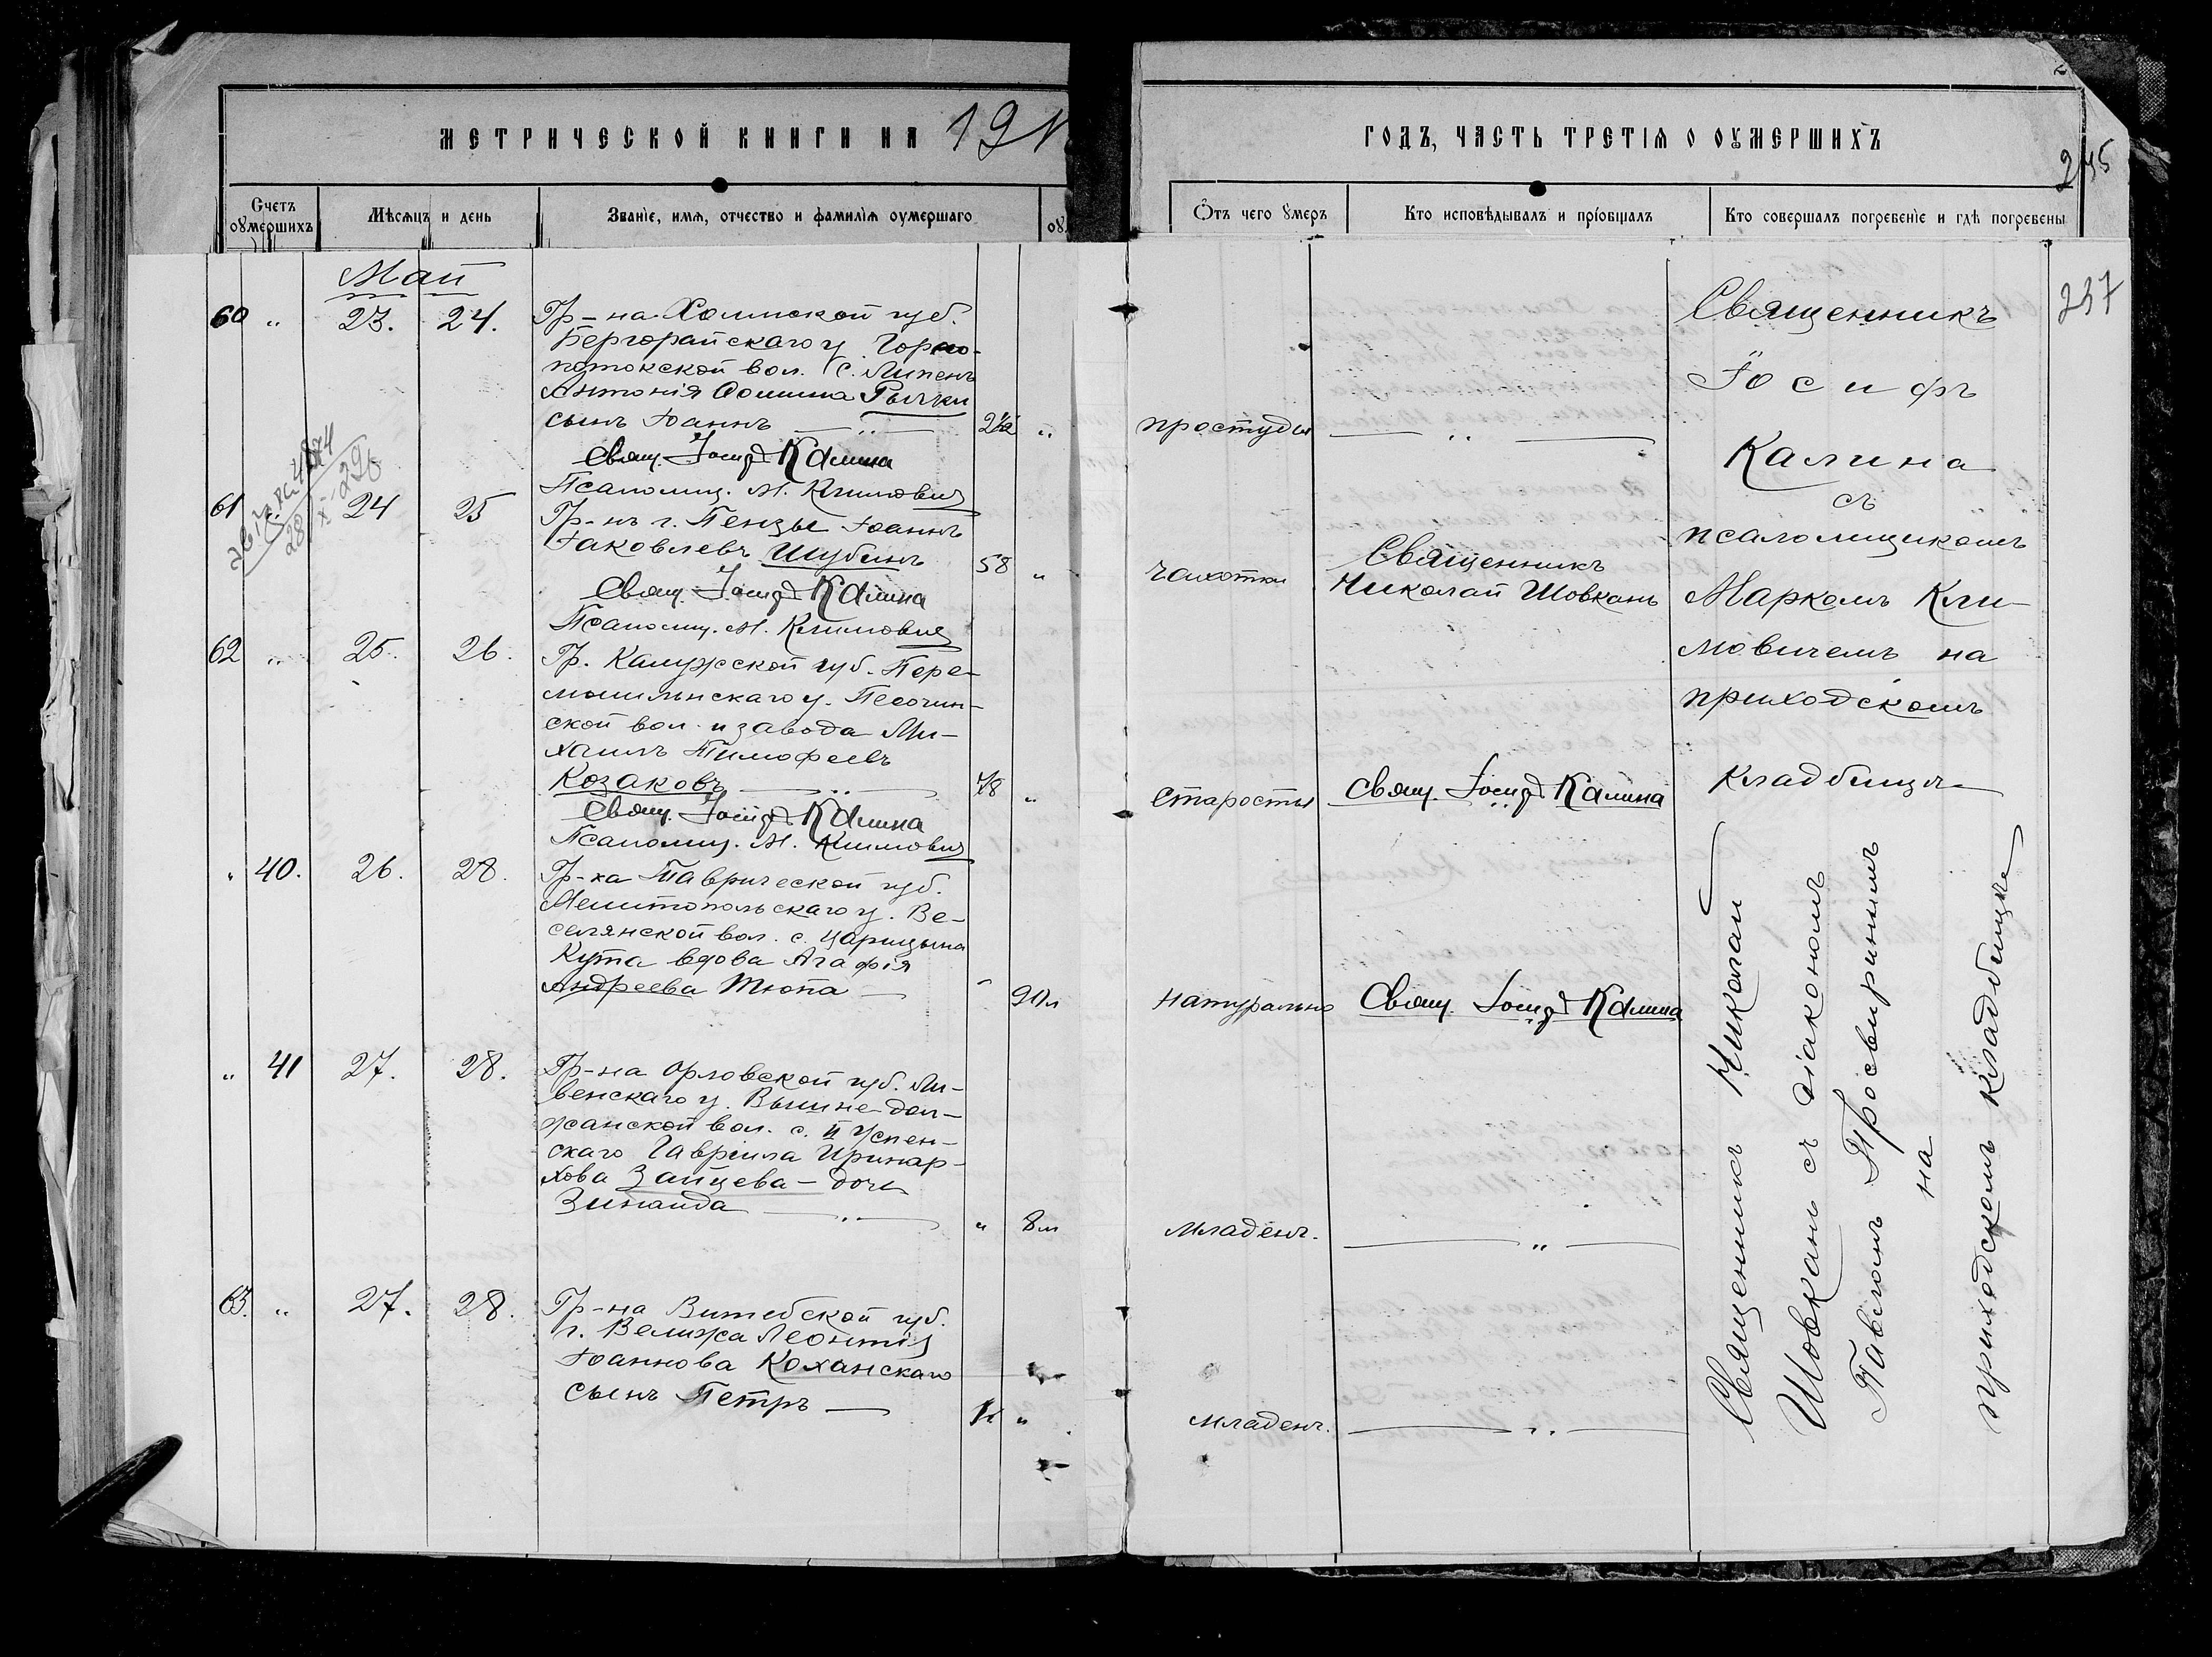 МЕТРИЧЕСКОЙ КНИГИ НА 191
Счетъ оумершихъ
Мѣсяцъ и день
Званіе, имя, отчество и фамилія оумершаго
Май
60 " 23. 24. Гр-на Холмской губ.
Белгорайскаго у. Горно-
потокской вол. с. Липень
Антонія Фомина Рычки
сынъ Іоаннъ — " — 2½ "
Свящ. Іосифъ Калина
Псаломщ. М. Климовичъ
61 " 24 25 Гр-нъ г. Пензы Іоаннъ
Іаковлевъ Шубинъ 58 "
Свящ. Іосифъ Калина
Псаломщ. М. Климовичъ
62 " 25. 26. Гр. Калужской губ. Пере-
мышльскаго у. Песочин-
ской вол. и завода Ми-
хаилъ Тимофеевъ
Козаковъ — " — 78 "
Свящ. Іосифъ Калина
Псаломщ. М. Климовичъ
" 40. 26. 28. Гр-ка Таврической губ.
Мелитопольскаго у. Ве-
селянской вол. с. Царицына
Кута вдова Агафія
Андреева Тюпа — " 90л
" 41 27. 28. Гр-на Орловской губ. Ли-
венскаго у. Вышне-Дол-
жанской вол. с. II Успен-
скаго Гавріила Иринар-
хова Зайцева — дочь
Зинаида — " — " 8м
63. " 27. 28. Гр-на Витебской губ.
г. Велижа Леонтія
Іоаннова Коханскаго
сынъ Петръ —
ГОДЪ, ЧАСТЬ ТРЕТІЯ О ОУМЕРШИХЪ
245
Отъ чего умеръ
Кто исповѣдывалъ и пріобщалъ
Кто совершалъ погребеніе и гдѣ погребены
237
простуды — " —
чахотки Священникъ
Николай Шовкань
старости Свящ. Іосифъ Калина
натурально Свящ. Іосифъ Калина
младенч. — " —
младенч. — " —
Священникъ
Іосифъ
Калина
съ
псаломщикомъ
Маркомъ Кли-
мовичемъ на
приходскомъ
кладбищѣ
Священникъ Николай
Шовкань съ діакономъ
Павломъ Просвирнинымъ
на
приходскомъ кладбищѣ